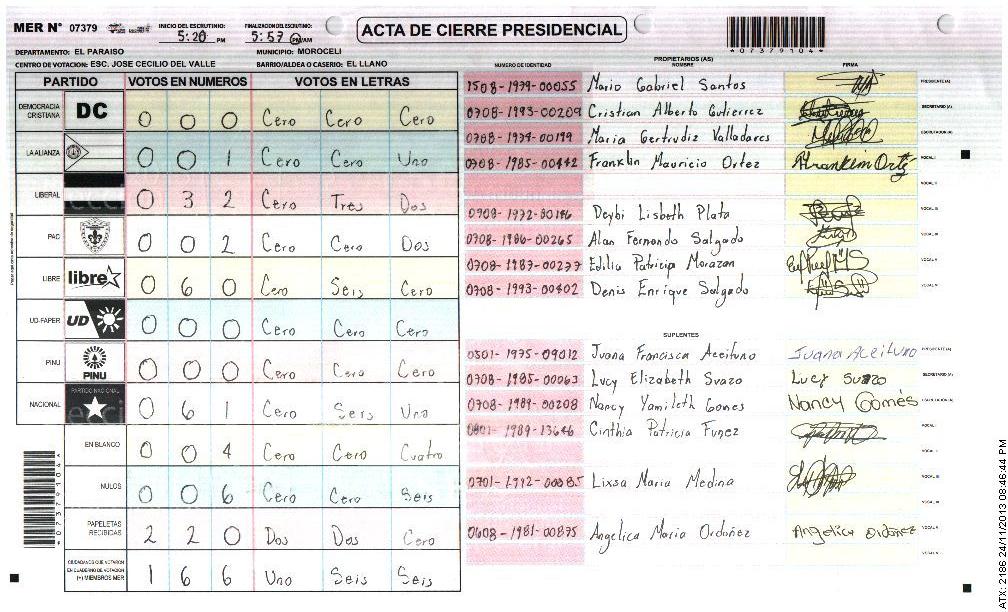 MER N° 07379 INICIO DEL ESCRUTINIO: 5:20 PM FINALIZACION DEL ESCRUTINIO: 5:57 PM/AM
ACTA DE CIERRE PRESIDENCIAL
073791041
DEPARTAMENTO: EL PARAISO MUNICIPIO: MOROCELI
CENTRO DE VOTACION: ESC. JOSE CECILIO DEL VALLE BARRIO/ALDEA O CASERIO: EL LLANO
PARTIDO VOTOS EN NUMEROS VOTOS EN LETRAS
DEMOCRACIA CRISTIANA DC 0 0 0 Cero Cero Cero
LA ALIANZA 0 0 1 Cero Cero Uno
LIBERAL 0 3 2 Cero Tres Dos
PAC 0 0 2 Cero Cero Dos
LIBRE libre 0 6 0 Cero Seis Cero
UD-FAPER UD 0 0 0 Cero Cero Cero
PINU PINU 0 0 0 Cero Cero Cero
NACIONAL PARTIDO NACIONAL 0 6 1 Cero Seis Uno
EN BLANCO 0 0 4 Cero Cero Cuatro
NULOS 0 0 6 Cero Cero Seis
PAPELETAS RECIBIDAS 2 2 0 Dos Dos Cero
CIUDADANOS QUE VOTARON EN CUADERNO DE VOTACION (+) MIEMBROS MER 1 6 6 Uno Seis Seis
PROPIETARIOS (AS)
NUMERO DE IDENTIDAD NOMBRE FIRMA
1508-1979-00055 Mario Gabriel Santos PRESIDENTE (A)
0708-1993-00209 Cristian Alberto Gutierrez SECRETARIO (A)
0708-1979-00199 Maria Gertrudiz Valladares ESCRUTADOR (A)
0708-1985-00442 Franklin Mauricio Ortez Frankim Ortéz VOCAL I
VOCAL II
0708-1972-00186 Deybi Lisbeth Plata VOCAL III
0708-1986-00265 Alan Fernando Salgado
0708-1987-00277 Edilia Patricia Morazan VOCAL V
0708-1993-00402 Denis Enrique Salgado
SUPLENTES
0301-1975-09012 Juana Francisca Aceituno Juana Aceituno PRESIDENTE (A)
0708-1985-00063 Lucy Elizabeth Svazo Lucy Suazo SECRETARIO (A)
0708-1989-00208 Nancy Yamileth Gomes Nancy Gomés ESCRUTADOR (A)
0801-1989-13646 Cinthia Patricia Funez VOCAL I
VOCAL II
0701-1992-00085 Lixsa Maria Medina VOCAL III
0608-1981-00875 Angelica Maria Ordoñez Angelica Ordoñez
073791041
ATX: 2186 24/11/2013 08:46:44 PM